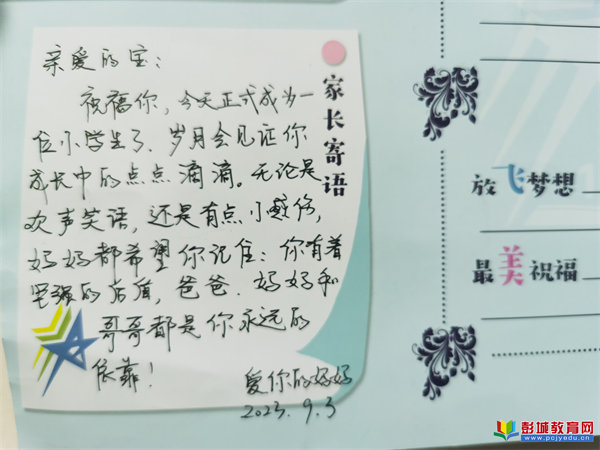 亲爱的宝：
祝福你，今天正式成为一
位小学生了。岁月会见证你
成长中的点点滴滴。无论是
欢声笑语，还是有点小感伤，
妈妈都希望你记住：你有着
坚强的后盾，爸爸、妈妈和
哥哥都是你永远的
依靠！
爱你的妈妈
2023.9.3
家长寄语
放飞梦想
最美祝福
彭城教育网
www.pcjyedu.cn